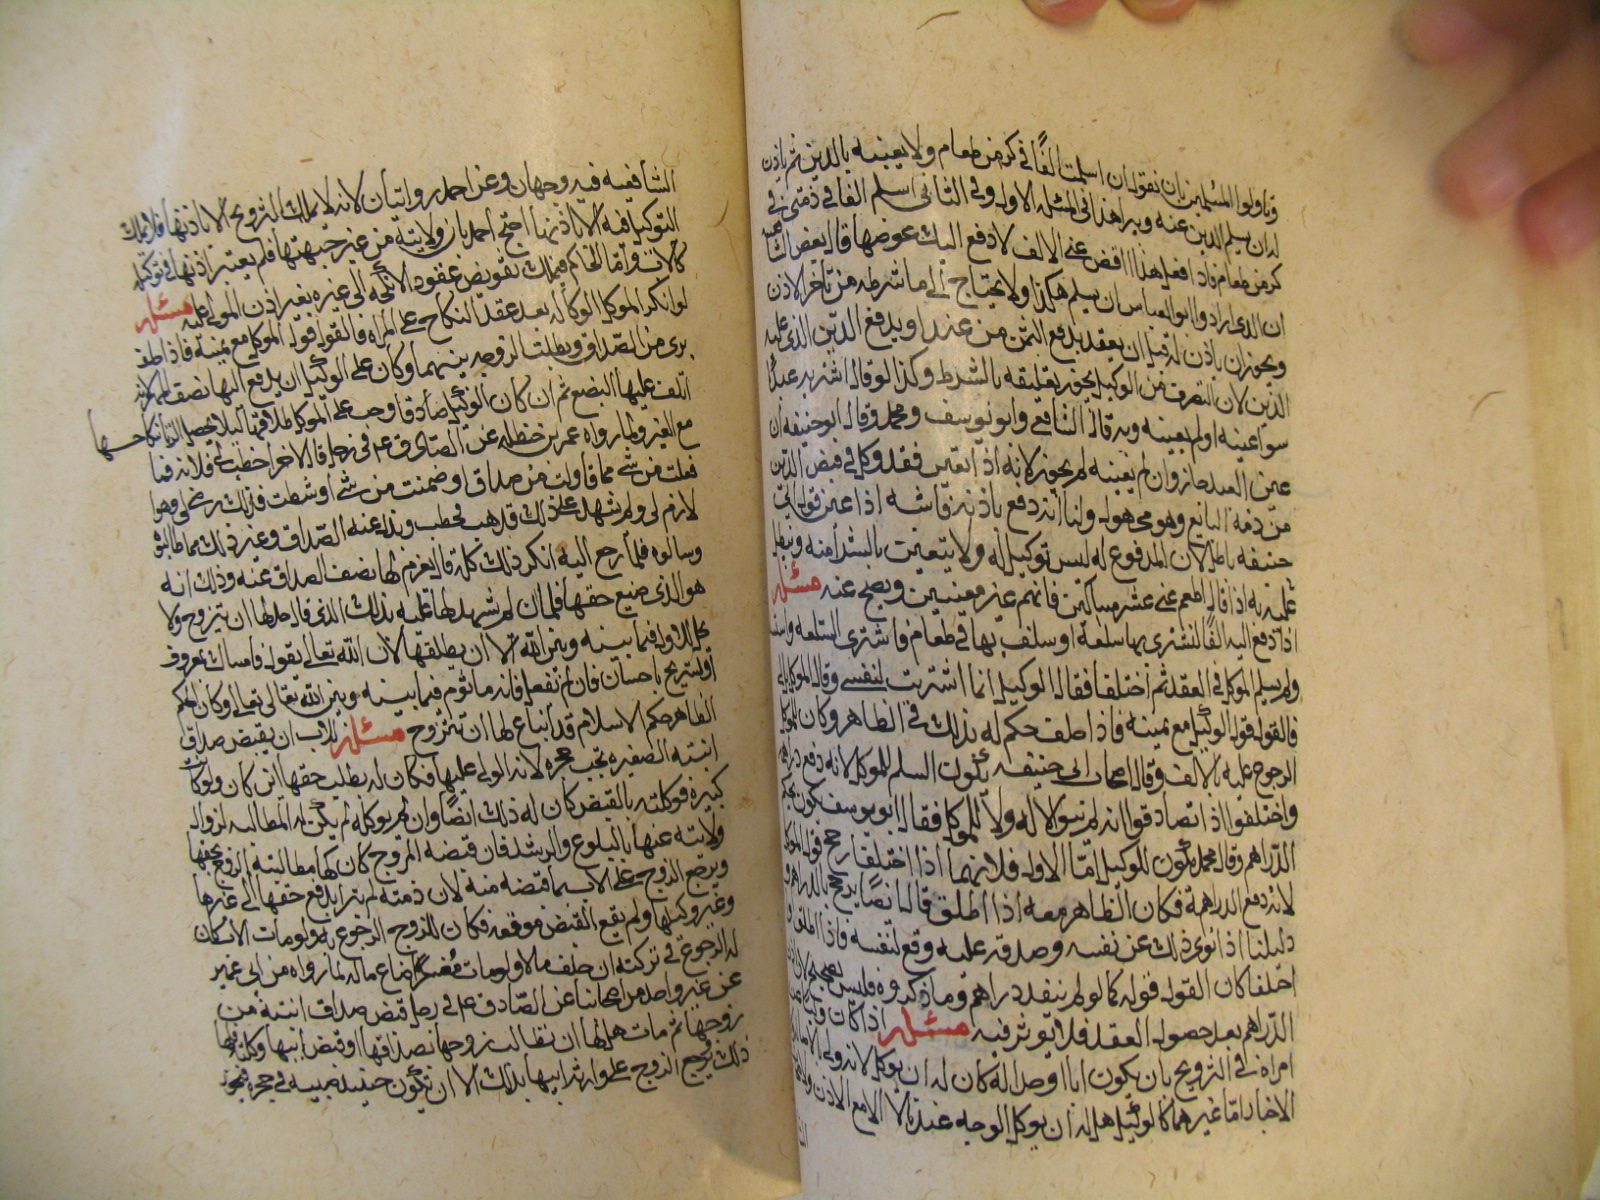 وتاولوا المسئلتين بان يقول ان اسلمت الفا في كر من طعام ولا يعينه بالدين ثم ياذن
له ان يسلم الدين عنه ويبرا هذا في المسئلة الاولى وفي الثاني اسلم الفا في ذمتي في
كر من طعام فاذا فعل هذا اقض عني الالف لادفع اليك عوضها قال بعض
ان الذي اراد وابو العباس ان يسلم هكذا ولا يحتاج الى ما شرطه من تاخر الاذن
ويجوز ان ياذن له قبل ان يعقد بدفع الثمن من عنده او يدفع الدين الذي عليه
الدين لان التصرف من الوكيل يجوز تعليقه بالشرط وكذا لو قال اشتر به عبدا
سوا عينه او لم يعينه وبه قال الشافعي وابو يوسف ومحمد وقال ابو حنيفه ان
عين العبد جاز وان لم يعينه لم يجز لانه اذا تعين فقد وكل في قبض الدين
من ذمة البايع وهو مجهول ولنا انه دفع باذنه فاشبه اذا عين قول ابي
حنيفه باطل لان المدفوع له ليس توكيل له ولا يتعين بالشرا منه وينتقض
عليه به اذا قال اطعم عني عشر مساكين فانهم غير معينين ويصح عنه مسئله
اذا دفع اليه الفا لتشتري بها سلعة او سلف بها في طعام فاشترى السلعه
ولم يسلم الموكل في العقد ثم اختلفا فقال الوكيل انما اشتريت لنفسي وقال الموكل لي
فالقول قول الوكيل مع يمينه فاذا حلف حكم له بذلك في الظاهر وكان للموكل
الرجوع عليه بالالف وقال اصحاب ابي حنيفه يكون السلم للموكل لانه دفع دراهمه
واختلفوا اذا تصادقوا انه لم ينو لا له ولا للموكل فقال ابو يوسف يكون بحكم
الدراهم وقال محمد يكون للوكيل امّا الاول فلانهما اذا اختلفا رجح قول الموكل
لانه دفع الدراهمة فكان الظاهر معه اذا اطلق قال ايضا يرجح بالدراهم
دليلنا اذا نوى ذلك عن نفسه وصدقه عليه وقع لنفسه فاذا اطلق او
اختلفا كان القول قوله كما لو لم ينقد دراهم وما ذكروه فليس بصحيح لان
الدراهم بعد حصول العقد فلا يؤثر فيه مسئله اذا كان
امراه في التزويج بان يكون ابا او جدا له كان له ان يوكل لانه ولي
الاخبار امّا غيرهما كالوكيل هل له ان يوكل الوجه عندنا لا الا مع الاذن
الشافعيه فيه وجهان وعن احمد روايتان لانه لا يملك التزويج الا باذنها فلا يملك
التوكيل فيه الا باذنها احتج احمد بان ولايته من غير جهتها فلم يعتبر اذنها في توكيله
كالاب وامّا الحاكم فيملك تفويض عقود الانكحه الى غيره بغير اذن المولى عليه مسئله
لو انكر الموكل الوكاله بعد عقد النكاح على المراه فالقول قول الموكل مع يمينه فاذا حلف
برى من الصداق وبطلت الزوجيه بينهما وكان على الوكيل ان يدفع اليها نصف المهر لانه
اتلف عليها البضع ثم ان كان الوكيل صادقا وجب على الموكل طلاقها ليلا يحصل الزنا بنكاحها
مع الغير ولما رواه عمر بن حنظله عن الصادق ع م في رجل قال لاخر اخطب لي فلانه فما
فعلت من شي مما قاولت من صداق او ضمنت من شي او شرطت فذلك رضى لي وهو
لازم لي ولم يشهد على ذلك فذهب فخطب وبذل عنه الصداق وغير ذلك مما طالبوه
وسالوه فلما رجع اليه انكر ذلك كله قال يغرم لها نصف الصداق عنه وذلك انه
هو الذي ضيع حقها فلما ان لم يشهد لها عليه بذلك الذي قال حل لها ان يتزوج ولا
يحل للاول فيما بينه وبين الله الا ان يطلقها لان الله تعالى يقول فامساك بمعروف
او تسريح باحسان فان لم يفعل فانه ماثوم فيما بينه وبين الله تعالى وكان الحكم
الظاهر حكم الاسلام قد اباح لها ان تتزوج مسئله للاب ان يقبض صداق
ابنته الصغيره تحت حجره لانه الولي عليها فكان له يطلب حقها اين كان ولو كان
كبيره فوكلته بالقبض كان له ذلك ايضا وان لم يوكله لم يكن له المطالبه لزوال
ولايته عنها بالبلوغ والرشد فان قبضه المزوج كان لها مطالبته الزوج بحقها
ويرجع الزوج على الاب بما قبضه منه لان ذمته لم تبرا بدفع حقها الى غيرها
وغير وكيلها ولم يقع القبض موقعه فكان للزوج الرجوع به ولو مات الاب كان
له الرجوع في تركته ان خلف مالا ولو مات مفلسا ضاع ماله لما رواه ابن ابي عمير
عن غير واحد من اصحابنا عن الصادق ع في رجل قبض صداق ابنته من
زوجها ثم مات هل لها ان تطالب زوجها بصداقها او قبض ابيها
ذلك يرجع الزوج على وارث ابيها بذلك الا ان تكون حينئذ صبيه في حجره فيجوز